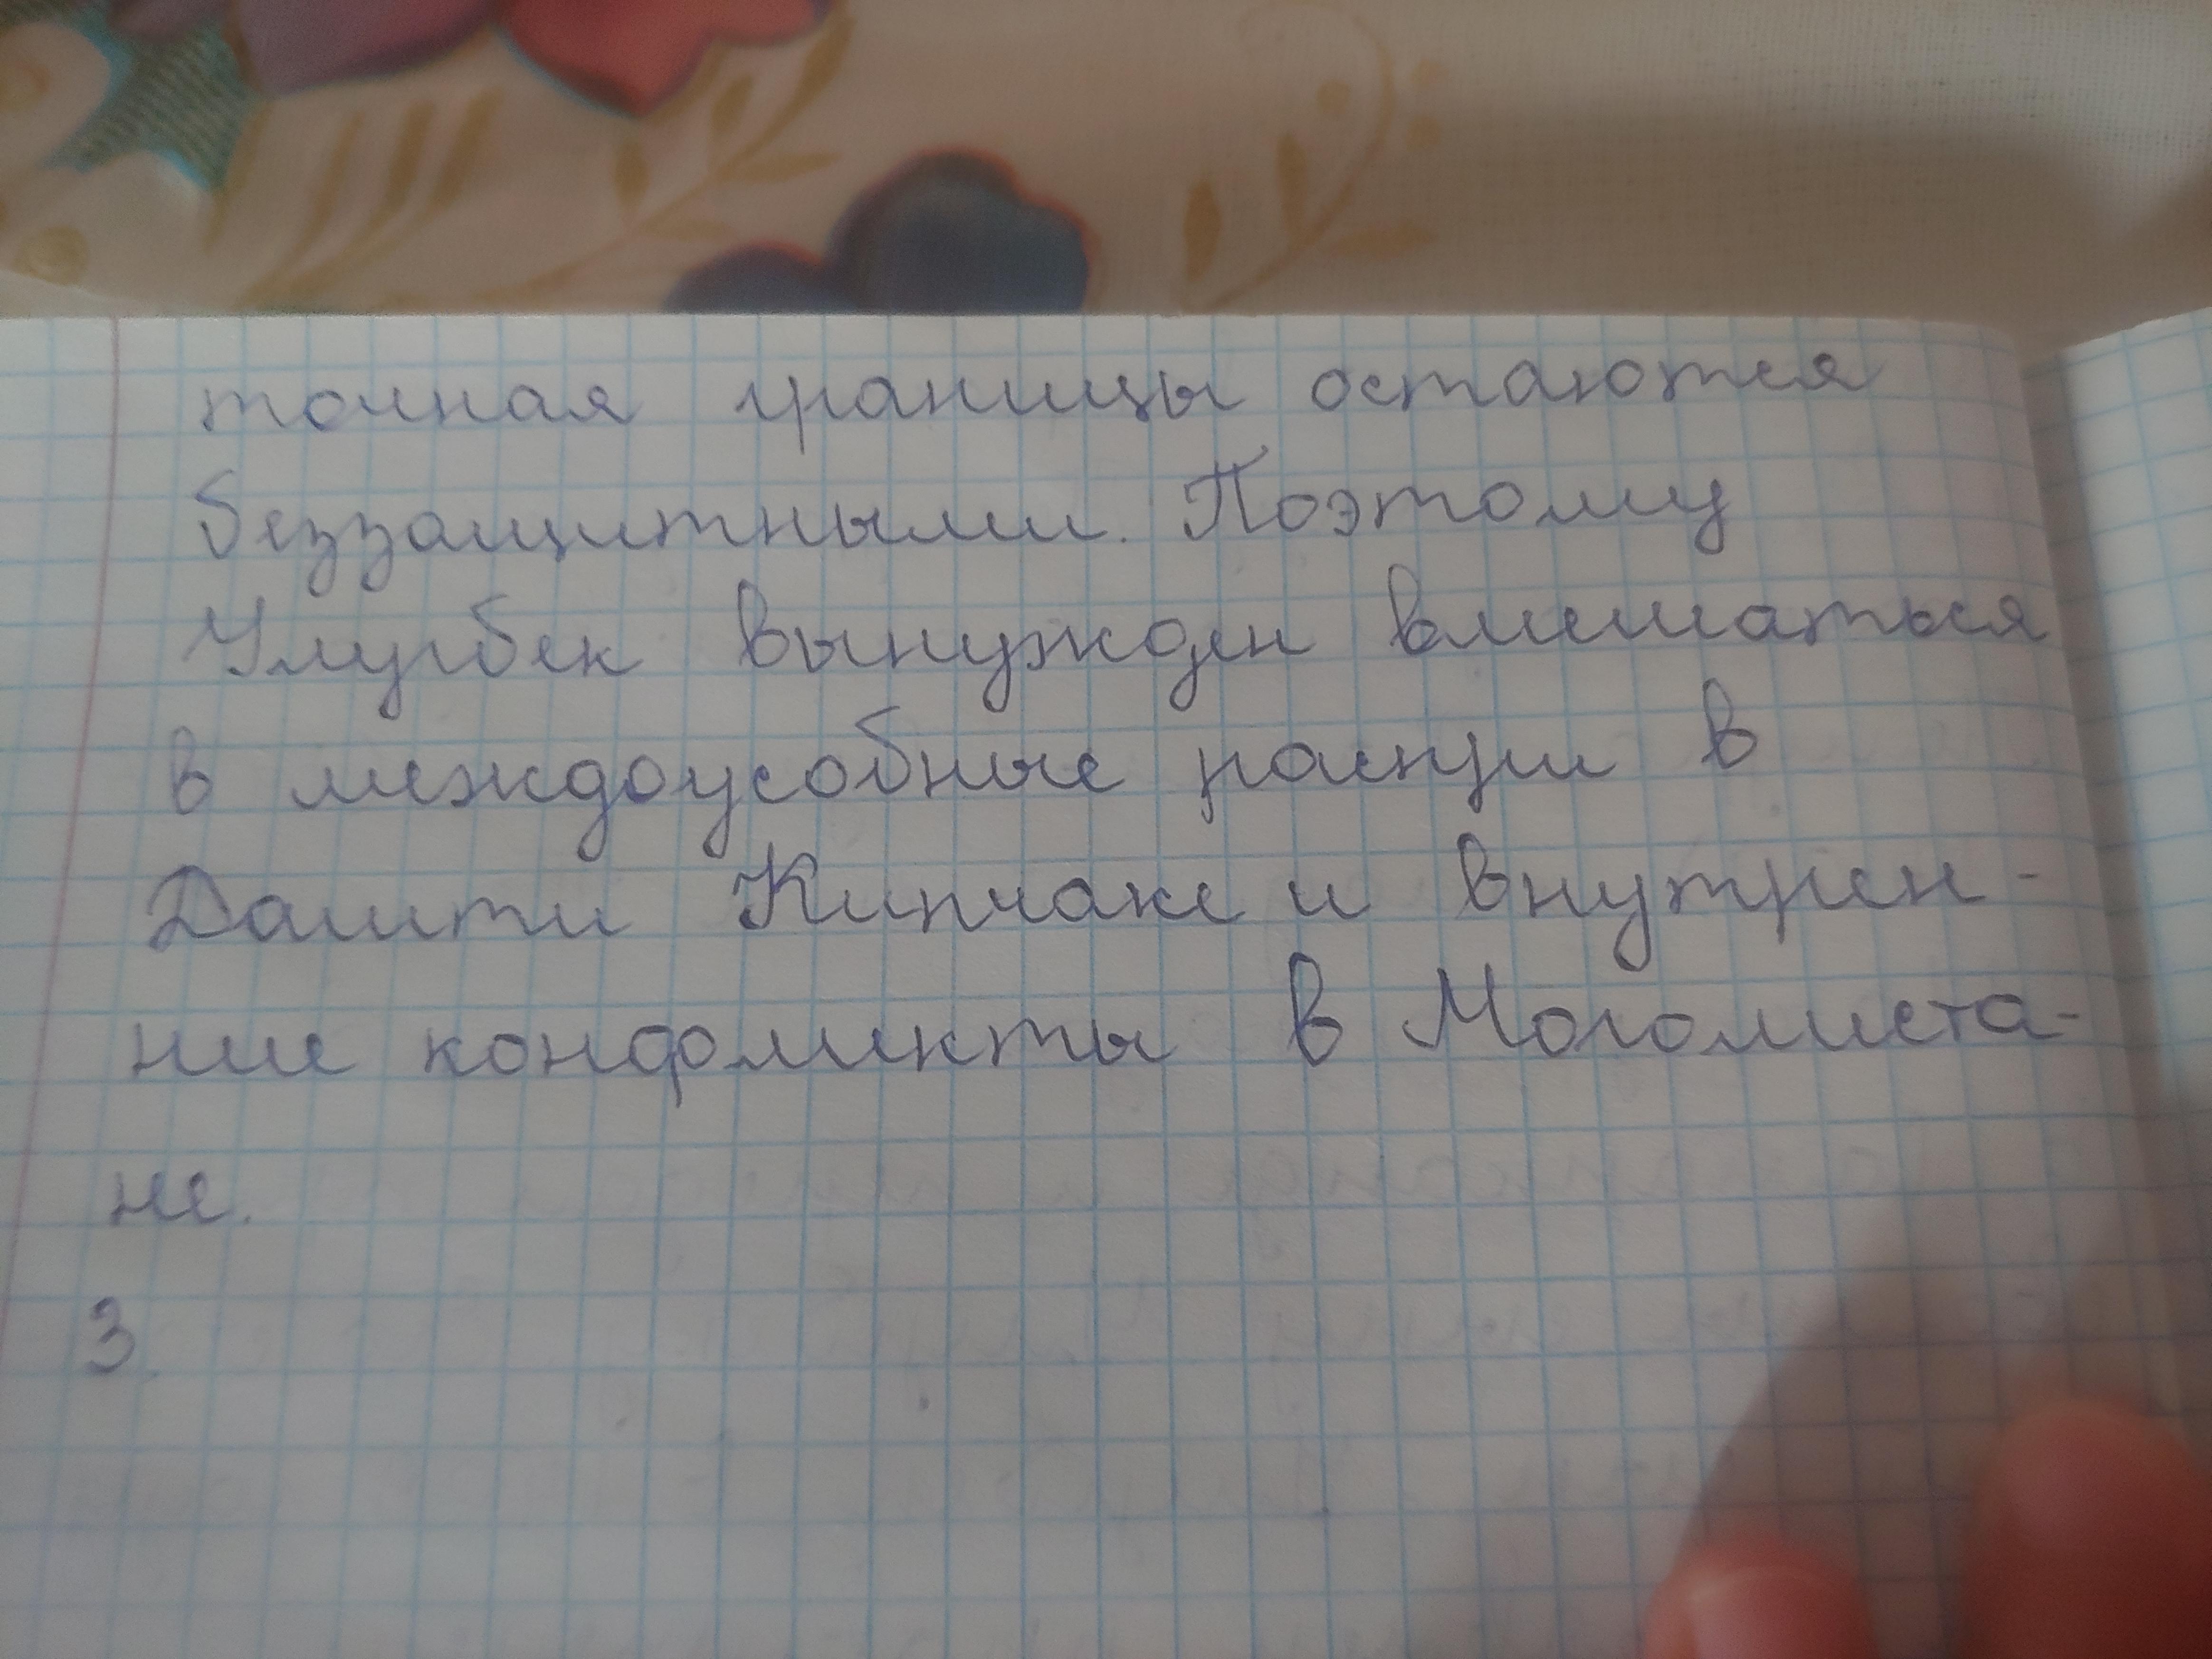 точная границы остаются
беззащитными. Поэтому
Улугбек вынужден вмешаться
в междоусобные распри в
Дашти Кипчаке и внутрен-
ние конфликты в Моголиста-
не.
3.